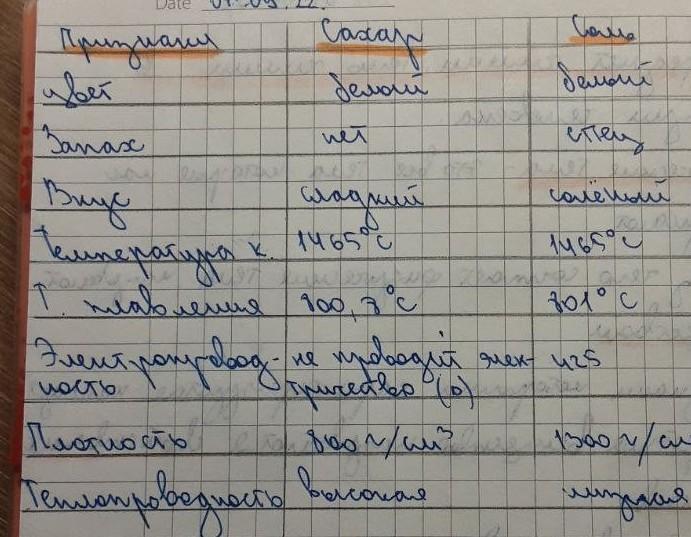 Date 01.09.22.
Признаки Сахар Соль
цвет белый белый
Запах нет спец
Вкус сладкий солёный
Температура к. 1465°C 1465°C
Т. плавления 800,8°C 801°C
Электропровод- не проводит элек- 425
ность тричество (0)
Плотность 800 г/см³ 1300 г/см
Теплопроводность высокая